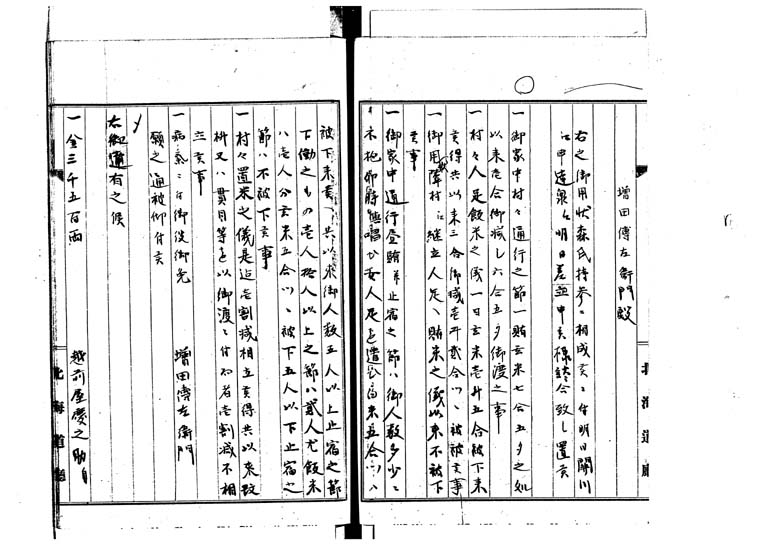 増田傳左衛門殿
右之御用状森氏持参ニ相成候ニ付明日関川
江申達泉江明日差立申候様談合致し置候
一御家中村々通行之節一賄玄米七合五夕之処
以来壱合御減し六合五夕御渡之事
一村々人足飯米之儀一日玄米壱升五合被下来
候得共以来三合御減壱升弐合ツヽ被下候事
一御用状障村江継立人足江賄米之儀以来不被下
候事
一御家中通行昼賄并止宿之節ハ御人数多少ニ
不拘
女人足を遣
白米五合ツヽ
被下来候得共以来御人数五人以上止宿之節
下働之もの壱人拾人以上之節ハ弐人尤飯米
ハ壱人分玄米五合ツヽ被下五人以下止宿之
節ハ不被下候事
一村々置米之儀是迄壱割減相立候得共以来改
枡又ハ貫目等を以御渡ニ付如若壱割減不相
立候事
一病気ニ付御役御免　増田傳左衛門
願之通被仰付候
右御通有之候
一金三千五百両　越前屋慶之助
北海道廳
北海道廳